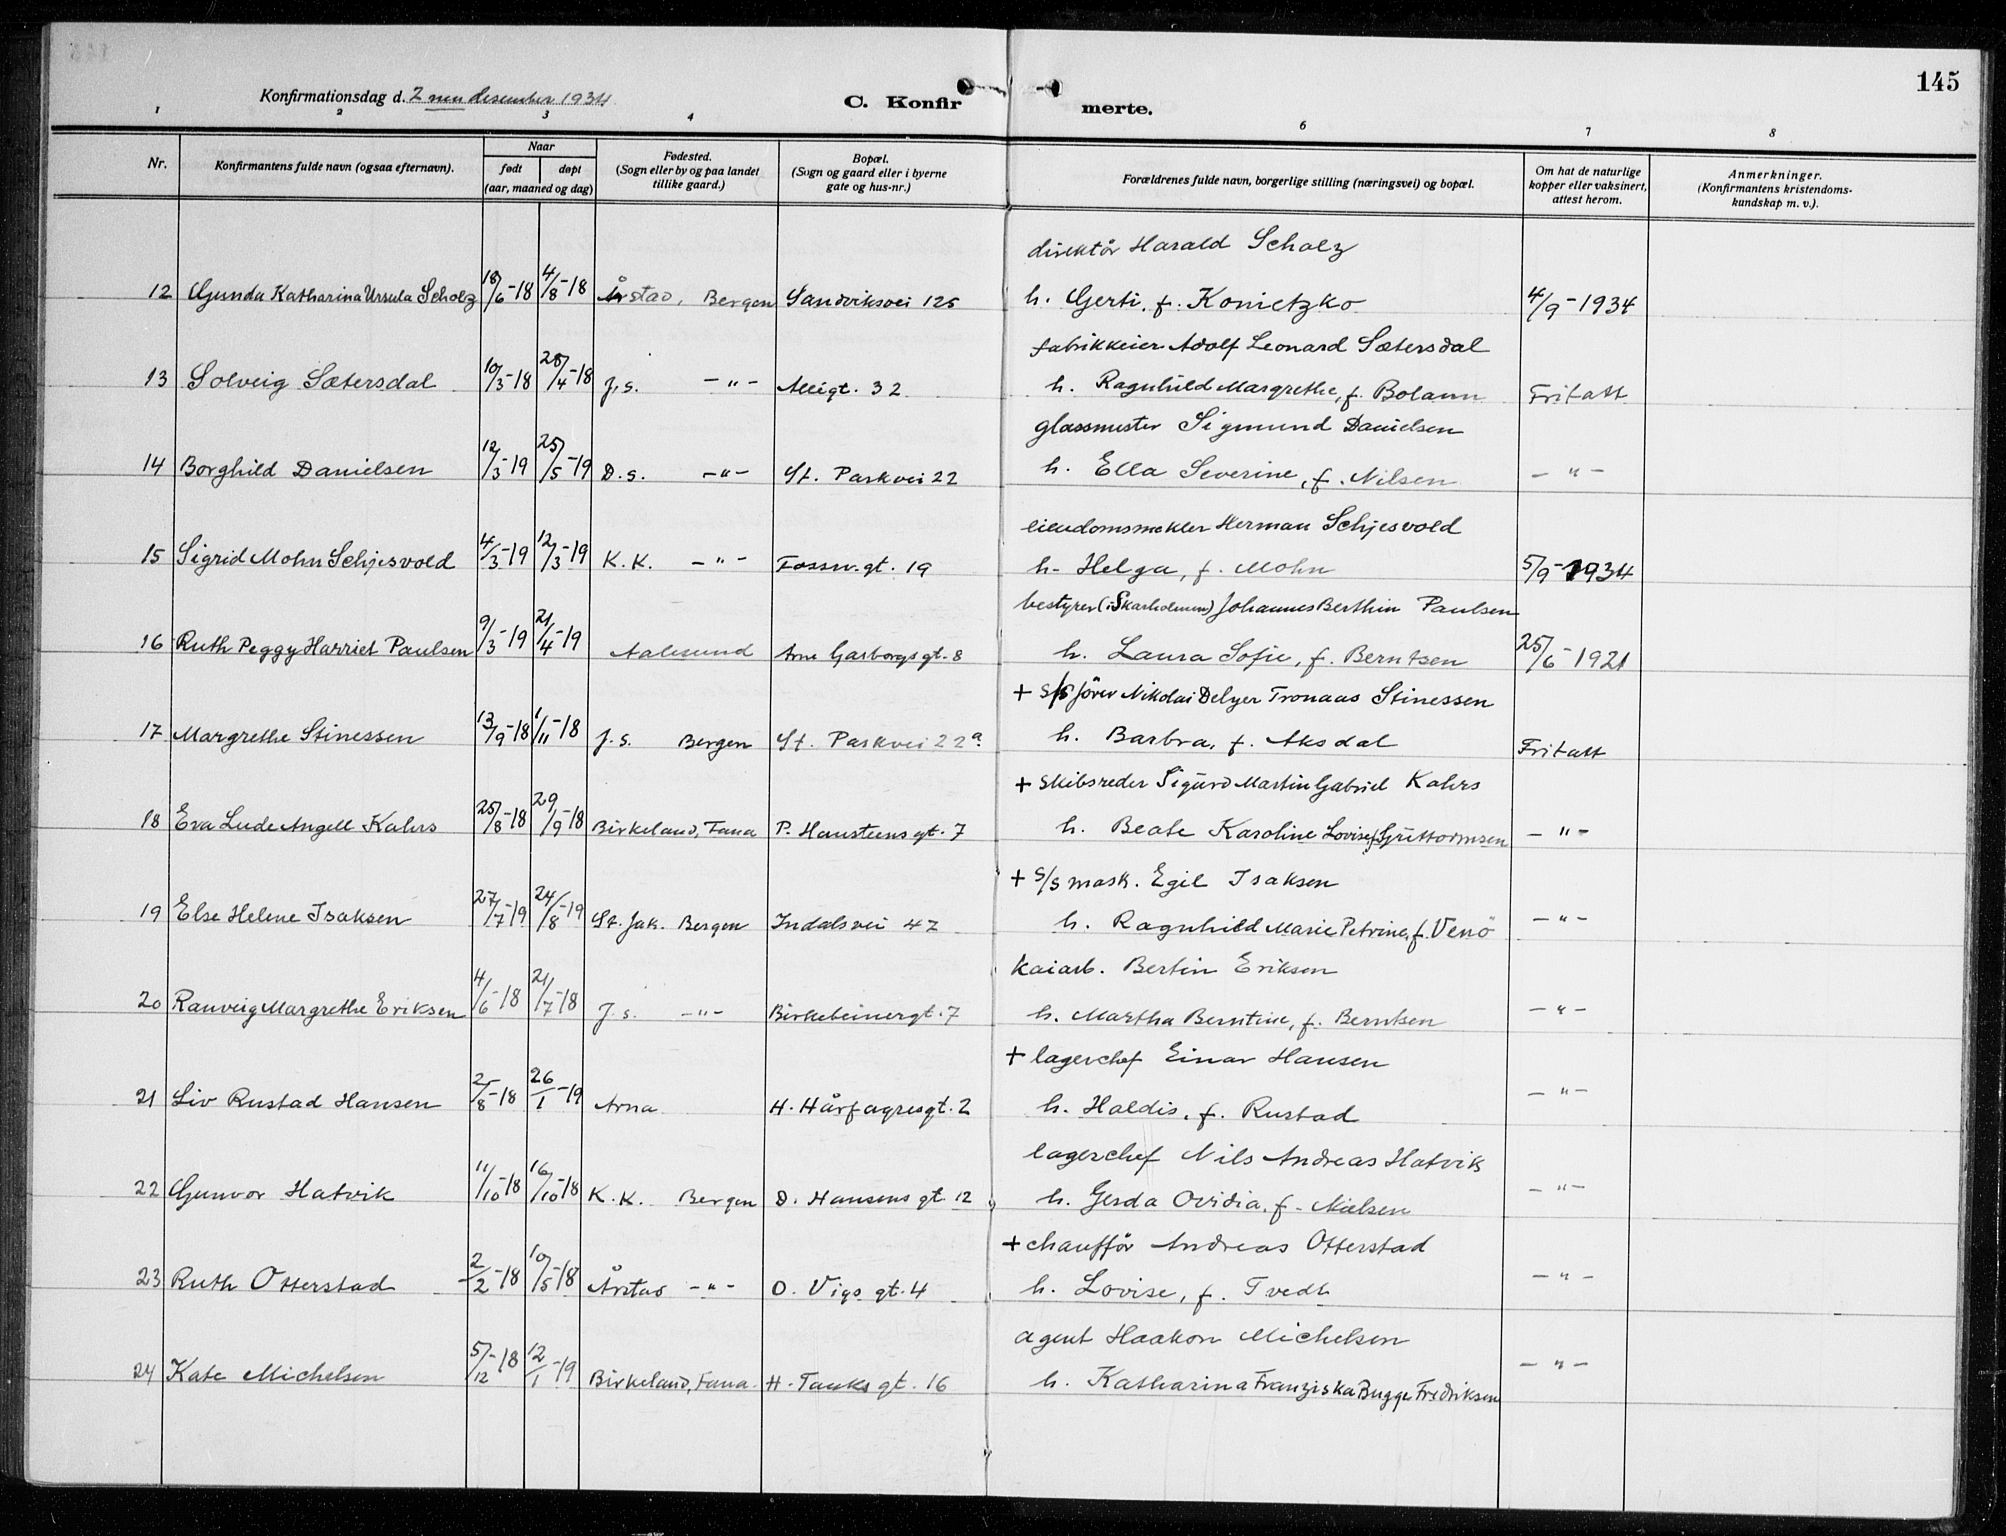 145
Konfirmationsdag d. 2nen desember 1934
C. Konfirmerte.
1 2 3 4 6 7 8
Nr.
Konfirmantens fulde navn (ogsaa efternavn).
Naar
født døpt
(aar, maaned og dag)
Fødested.
(Sogn eller by og paa landet
tillike gaard.)
Bopæl.
(Sogn og gaard eller i byerne
gate og hus-nr.)
Forældrenes fulde navn, borgerlige stilling (næringsvei) og bopæl.
Om hat de naturlige
kopper eller vaksinert,
attest herom.
Anmerkninger.
(Konfirmantens kristendoms-
kundskap m. v.).
direktör Harald Scholz
12 Gunda Katharina Ursula Scholz 18/6-18 4/8-18 Årstad, Bergen Sandviksvei 125 h. Gerti, f. Konietzko 4/9-1934
fabrikkeier Adolf Leonard Sætersdal
13 Solveig Sætersdal 10/3-18 28/4-18 J.s. -"- Allégt. 32 h. Ragnhild Margrethe, f. Bolann Fritatt
glassmester Sigmund Danielsen
14 Borghild Danielsen 12/3-19 25/5-19 D.s. -"- St. Parkvei 22 h. Ella Severine, f. Nilsen -"-
eiendomsmekler Herman Schjesvold
15 Sigrid Mohn Schjesvold 4/3-19 12/3-19 K.K. -"- Fossw.gt. 19 h. Helga, f. Mohn 5/9-1934
bestyrer (i Skarholmen) Johannes Berthin Paulsen
16 Ruth Peggy Harriet Paulsen 9/3-19 21/4-19 Aalesund Arne Garborgsgt. 8 h. Laura Sofie, f. Berntsen 25/6-1921
+ s/s förer Nikolai Delyer Tronaas Stinessen
17 Margrethe Stinessen 13/9-18 1/11-18 J.s. Bergen St. Parkvei 22a h. Barbra, f. Aksdal Fritatt
+ skibsreder Sigurd Martin Gabriel Kahrs
18 Eva Lude Angell Kahrs 25/8-18 29/9-18 Birkeland, Fana P. Hansteensgt. 7 h. Beate Karoline Lovise, f. Guttormsen -"-
+ s/s mask. Egil Isaksen
19 Else Helene Isaksen 27/7-19 24/8-19 St. Jak. Bergen Indalsvei 47 h. Ragnhild Marie Petrine, f. Venö -"-
kaiarb. Bertin Eriksen
20 Ranveig Margrethe Eriksen 4/6-18 21/7-18 J.s. -"- Birkebeinergt. 7 h. Martha Berntine, f. Berntsen -"-
+ lagerchef Einar Hansen
21 Liv Rustad Hansen 2/8-18 26/1-19 Arna H. Hårfagresgt. 2 h. Haldis, f. Rustad -"-
lagerchef Nils Andreas Hatvik
22 Gunvor Hatvik 11/10-18 16/10-18 K.K. Bergen D. Hansens gt. 12 h. Gerda Ovidia, f. Nielsen -"-
+ chaufför Andreas Otterstad
23 Ruth Otterstad 2/2-18 10/5-18 Årstad -"- O. Vigs gt. 4 h. Lovise, f. Tvedt -"-
agent Haakon Michelsen
24 Kate Michelsen 5/12-18 12/1-19 Birkeland, Fana. H. Tanks gt. 16 h. Katharina Franziska Bugge Fredriksen -"-